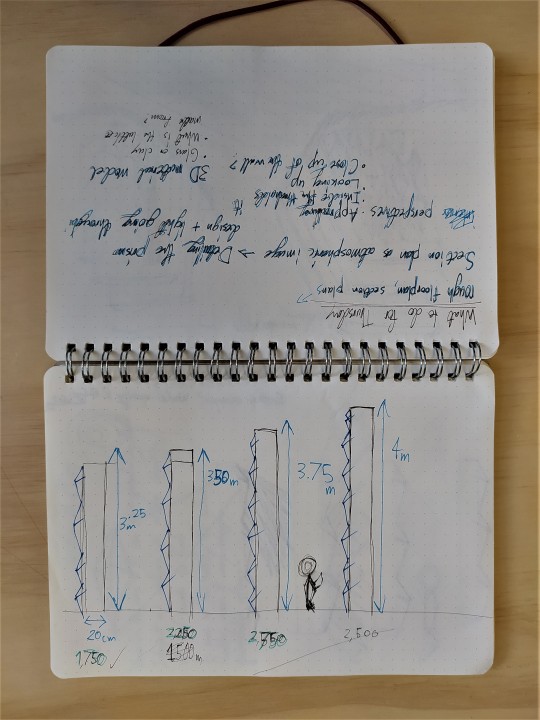 What to do for Thursday
rough floorplan, section plans
Section plan as atmospheric image → Detailing the prism
design + light going through it
perspectives · Approaching
Inside the thresholds
Looking up
• Close up of the wall?
3D material model
• Glass or clay
• What is the lattice
made from?
3.25
m
3.50 m
3.75
m
4
m
20cm
1,750 ✓
2,250
1500m
2,750
2,500